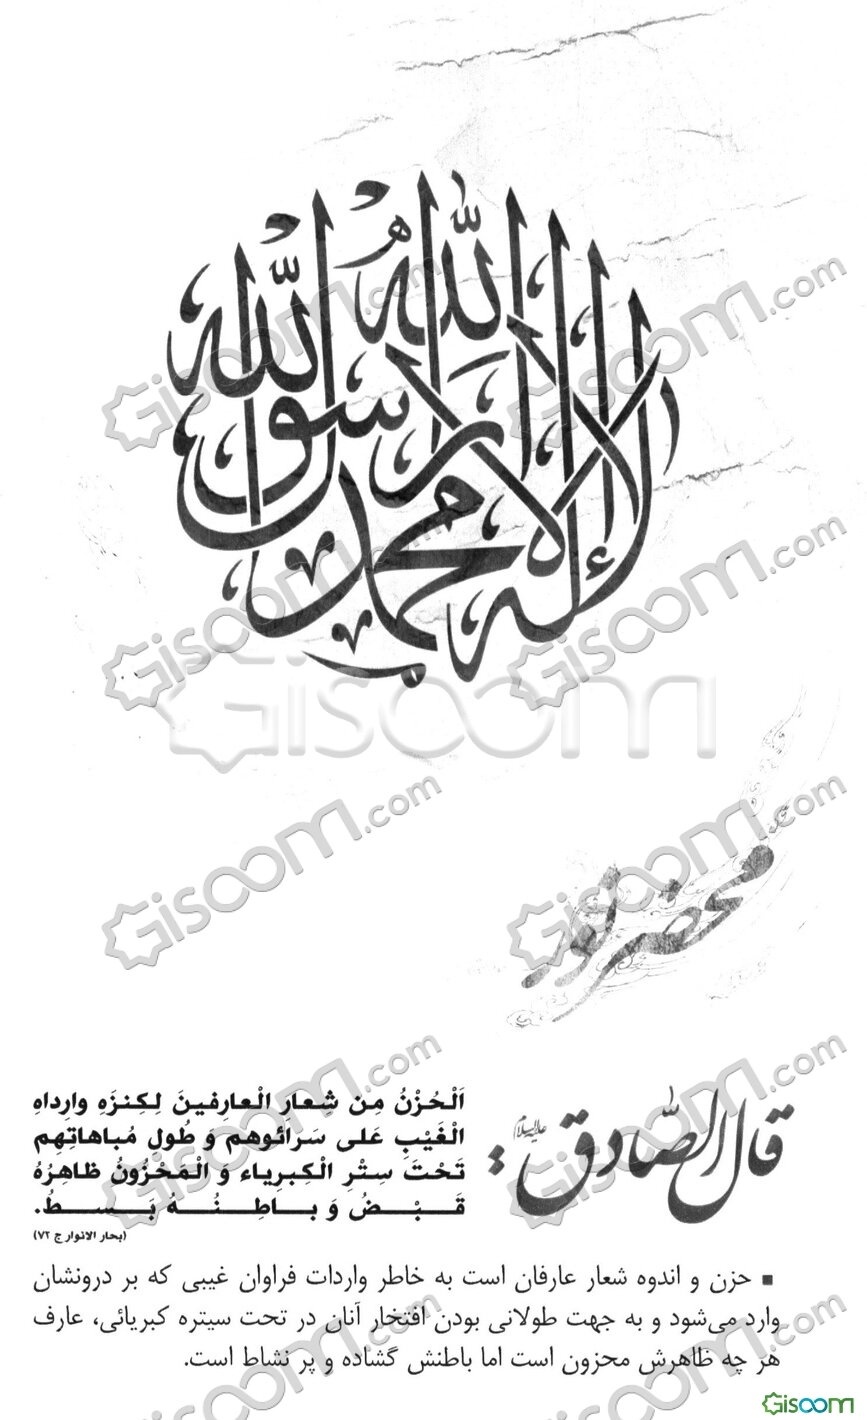 لا إله إلا الله محمد رسول الله
محضر نور
قال الصّادق علیه‌السلام:
اَلْحُزْنُ مِن شعارِ الْعارِفینَ لِکِنزَهِ وارِداهِ
الْغَیْبِ عَلی سَرائوهم وَ طُول مُباهاتِهِم
تَحْتَ سِتْرِ الْکِبرِیاء وَ الْمَحْزُونُ ظاهِرُهُ
قَبْضُ وَ باطِنُهُ بَسطُ.
(بحار الانوار ج ۷۲)
▪ حزن و اندوه شعار عارفان است به خاطر واردات فراوان غیبی که بر درونشان
وارد می‌شود و به جهت طولانی بودن افتخار آنان در تحت سیتره کبریائی، عارف
هر چه ظاهرش محزون است اما باطنش گشاده و پر نشاط است.
Gisoom.com
Gisoom